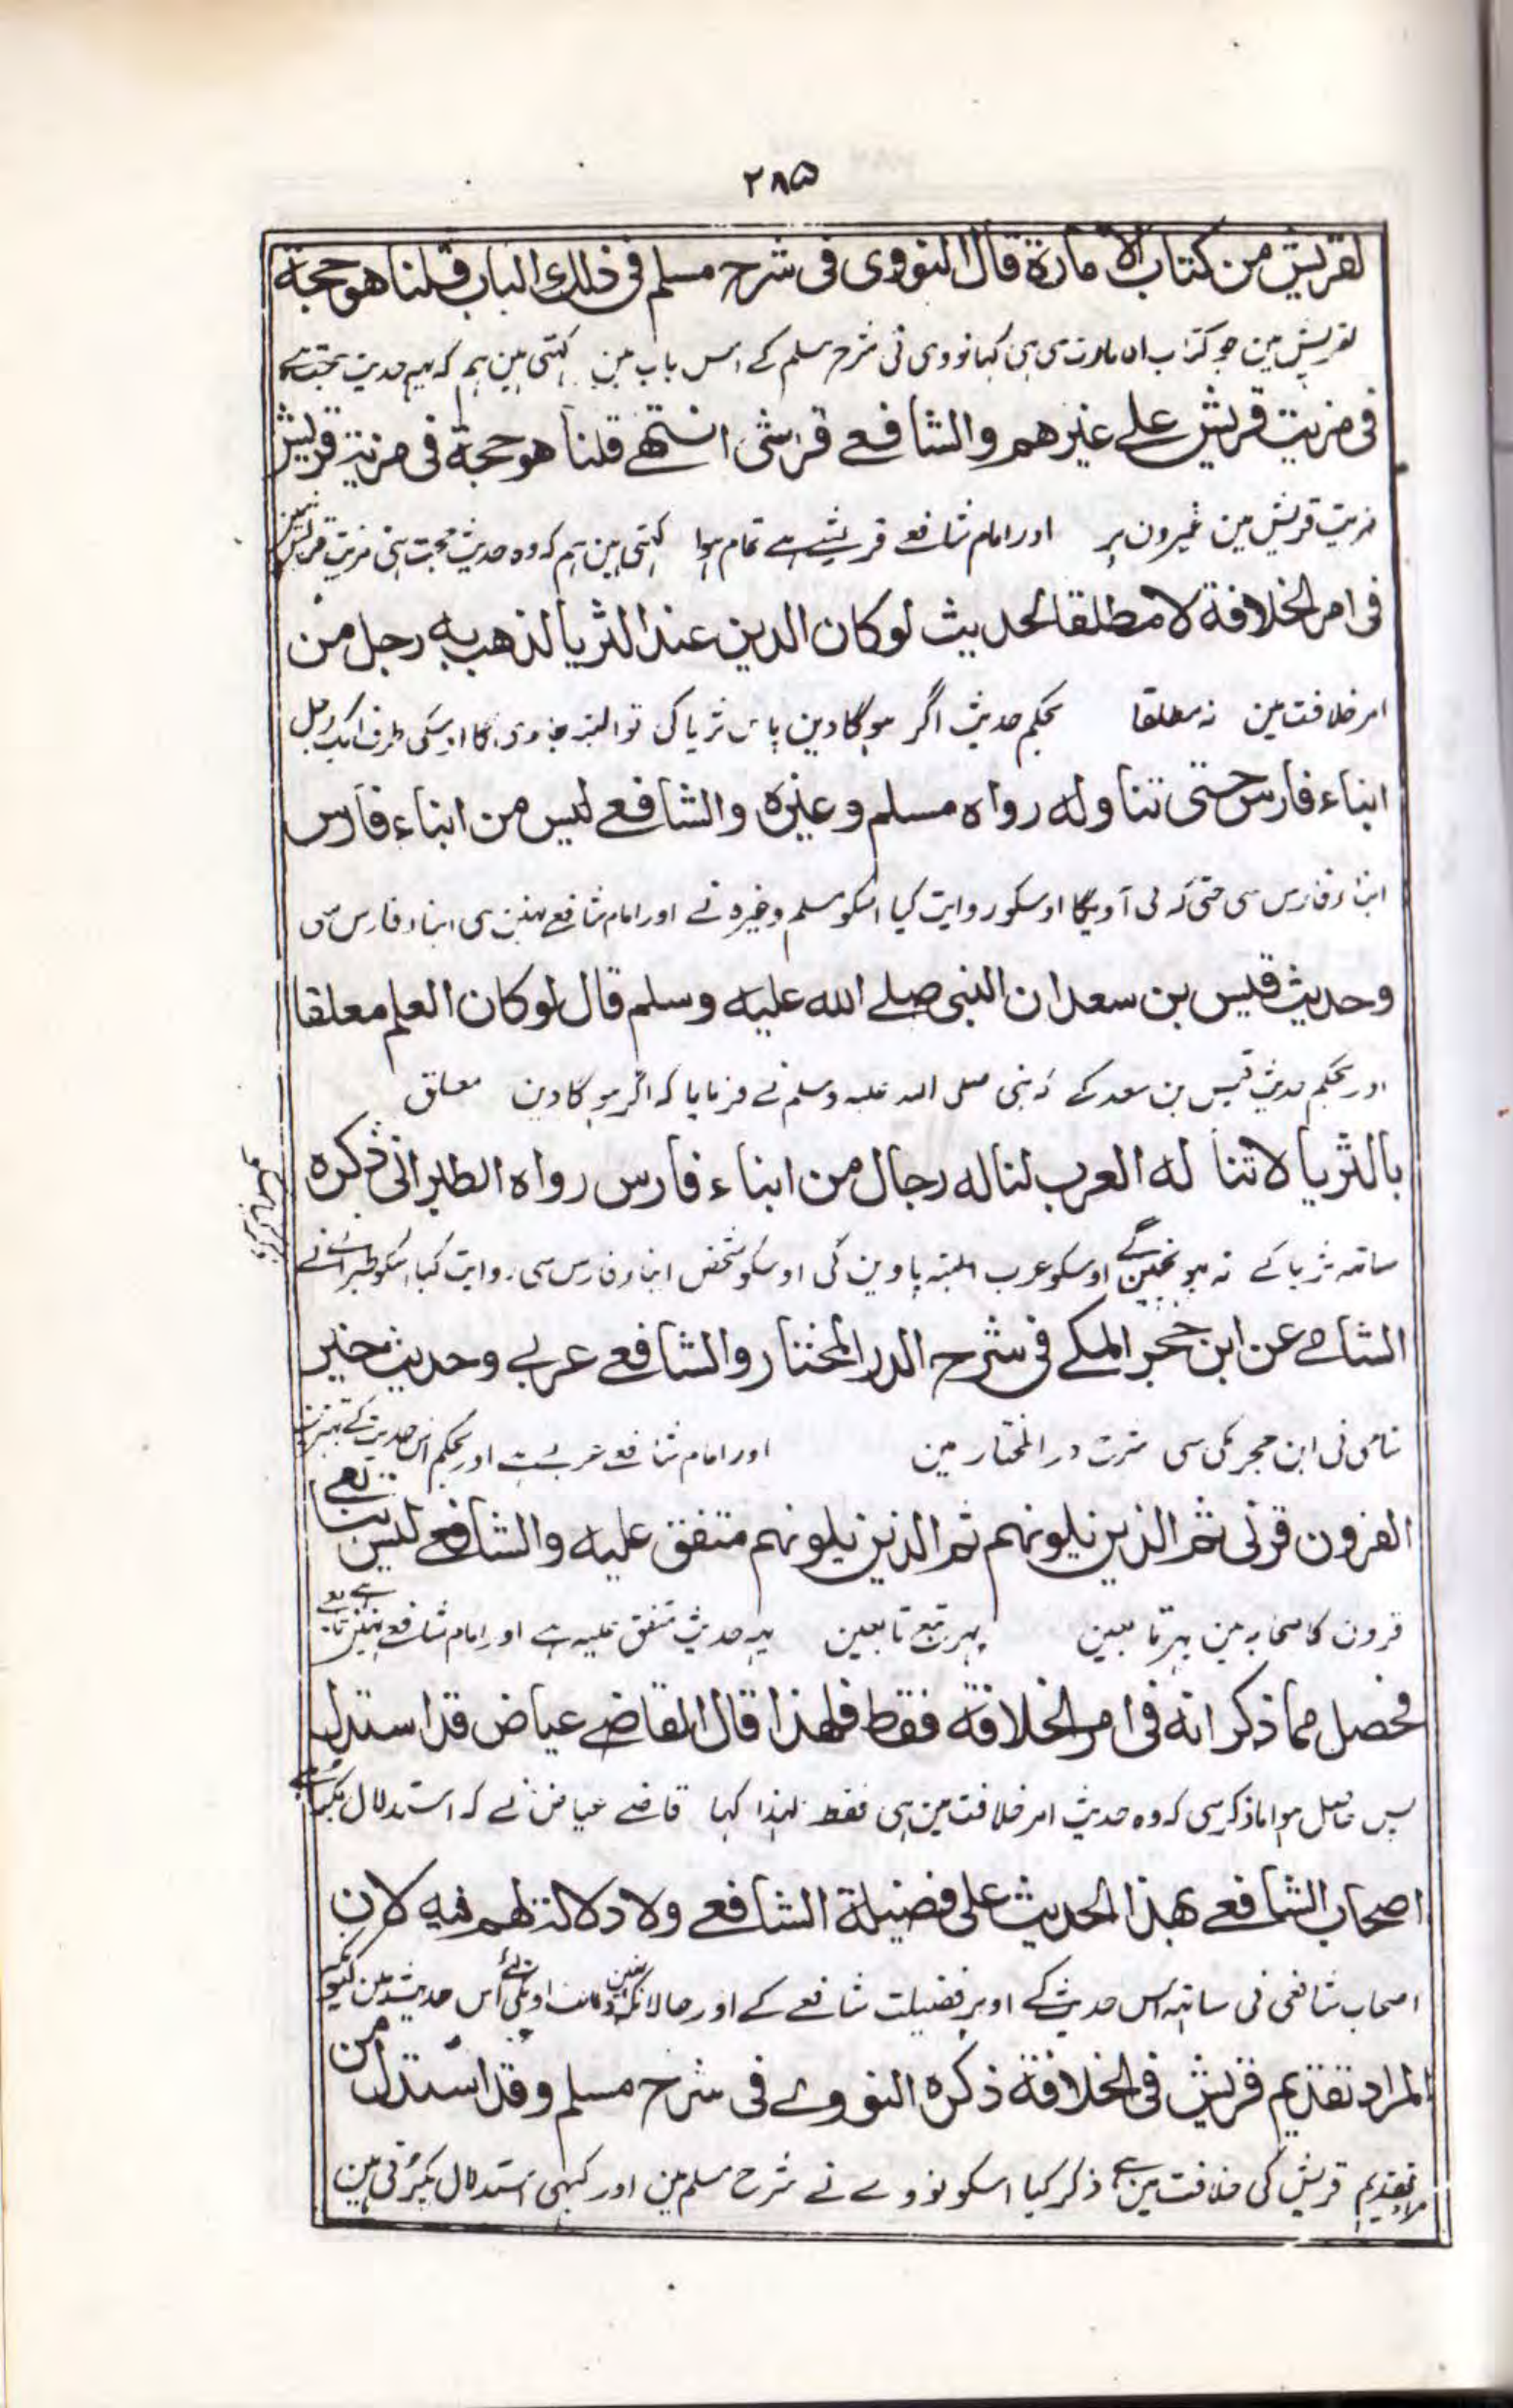 ٢٨۵
لقريش من كتاب الامارة قال النووى فى شرح مسلم فى ذلك الباب قلنا هو حجة
لقریش مین جو کتاب الامارت سی ہی کہا نووی نی شرح مسلم کے اس باب مین کہتی ہین ہم کہ یہہ حدیث حجت ہے
فى مزيت قريش على غيرهم والشافعے قرشى انتهے قلنا هو حجة فى مزية قريش
مزیت قریش مین غیرون پر اور امام شافعے قریشے ہے تمام ہوا کہتی ہین ہم کہ وہ حدیث حجت ہی مزیت قریش مین
فى امر الخلافة لا مطلقا لحديث لو كان الدين عند الثريا لذهب به رجل من
امر خلافت مین نہ مطلقا بحکم حدیث اگر ہوگا دین پاس ثریا کی تو البتہ جاوی گا اوسکی طرف ایک رجل
ابناء فارس حتى تناوله رواه مسلم وغيره والشافعے ليس من ابناء فارس
ابناء فارس سی حتی کہ لی آویگا اوسکو روایت کیا اسکو مسلم وغیرہ نے اور امام شافعے نہین ہی ابناء فارس سی
وحديث قيس بن سعد ان النبى صلے الله عليه وسلم قال لو كان العلم معلقا
اور بحکم حدیث قیس بن سعد کے کہ نبی صلی اللہ علیہ وسلم نے فرمایا کہ اگر ہوگا دین معلق
بالثريا لا تنا له العرب لناله رجال من ابناء فارس رواه الطبرانى ذكره
ساتہہ ثریا کے نہ پہونچینگے اوسکو عرب البتہ پاوین گی اوسکو شخص ابناء فارس سی روایت کیا اسکو طبرانے نے
الشامے عن ابن حجر المكے فى شرح الدر المختار والشافعے عربے وحديث خير
شامی نی ابن حجر مکی سی شرح در المختار مین اور امام شافعے عربے ہے اور بحکم اس حدیث کے بہترین
القرون قرنى ثم الذين يلونهم ثم الذين يلونهم متفق عليه والشافعے ليس بتابعے
قرون کا صحابہ مین پہر تابعین پہر تبع تابعین یہہ حدیث متفق علیہ ہے اور امام شافعے نہین تابعے ہے
فحصل مما ذكر انه فى امر الخلافة فقط فلهذا قال القاضے عياض قد استدل
پس حاصل ہوا ماذکر سی کہ وہ حدیث امر خلافت مین ہی فقط لہذا کہا قاضے عیاض نے کہ استدلال پکڑا ہے
اصحاب الشافعے بهذا الحديث على فضيلة الشافعے ولا دلالة لهم فيه لان
اصحاب شافعی نی ساتہہ اس حدیث کے اوپر فضیلت شافعے کے اور حالانکہ نہین دلالت اونکی لئے اس حدیث مین کیونکہ
المراد تقديم قريش فى الخلافة ذكره النووے فى شرح مسلم وقد استدل من
مراد تقدیم قریش کی خلافت مین ہے ذکر کیا اسکو نووے نے شرح مسلم مین اور کبہی استدلال پکڑتی ہین